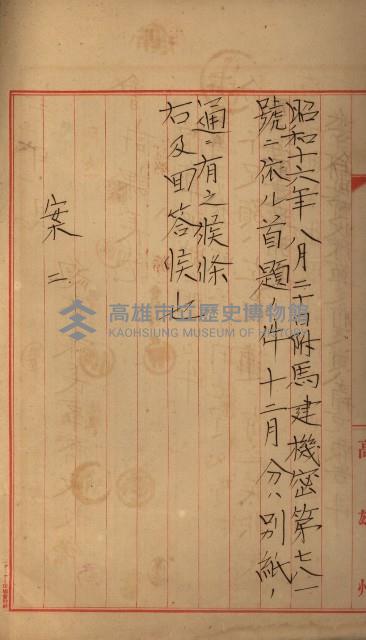 昭和十六年八月二十日附馬建機密第七八一
號ニ依ル首題ノ件十二月分ハ別紙ノ
通ニ有之候條
右及回答候也
案二
高雄州
高雄市立歷史博物館
KAOHSIUNG MUSEUM OF HISTORY